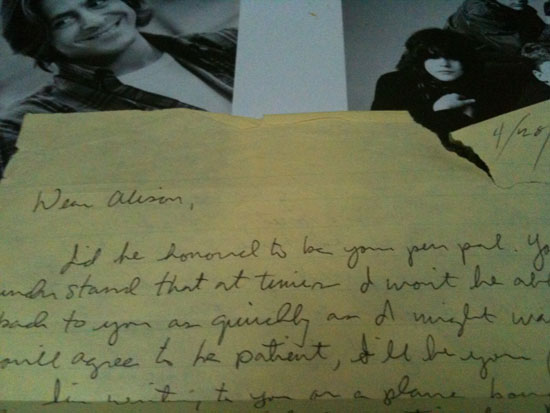 4/20/
Dear Alison,
I'd be honored to be your pen pal. Yo
understand that at times I won't be ab
back to you as quickly as I might wa
will agree to be patient, I'll be your
I'm writing to you on a plane boun